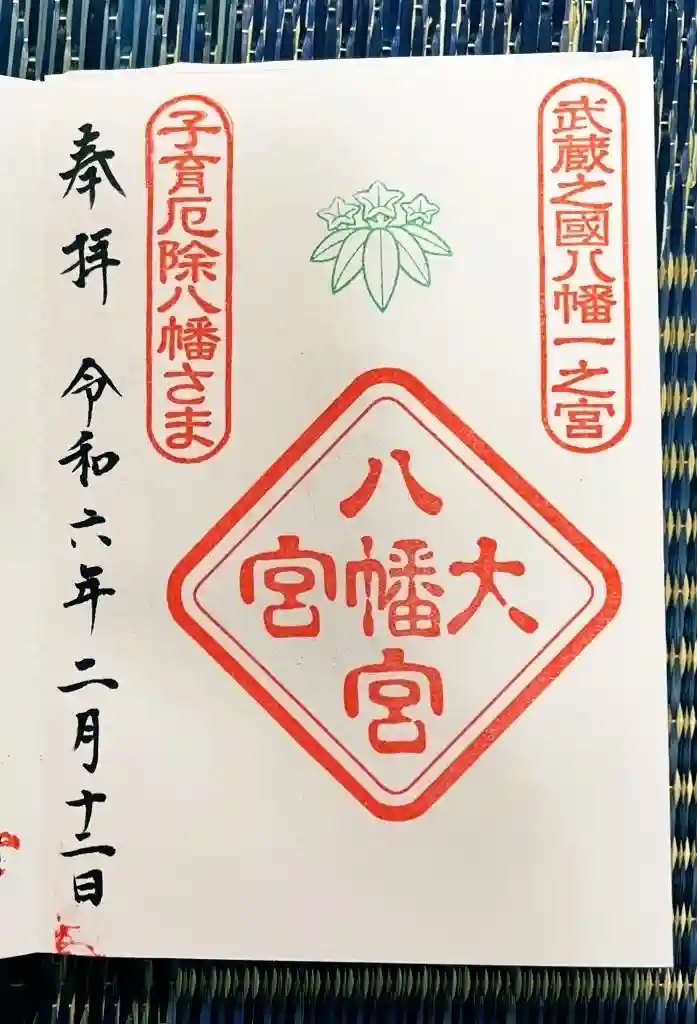 武蔵之國八幡一之宮
大
八幡宮
宮
子育厄除八幡さま
奉拝 令和六年二月十二日